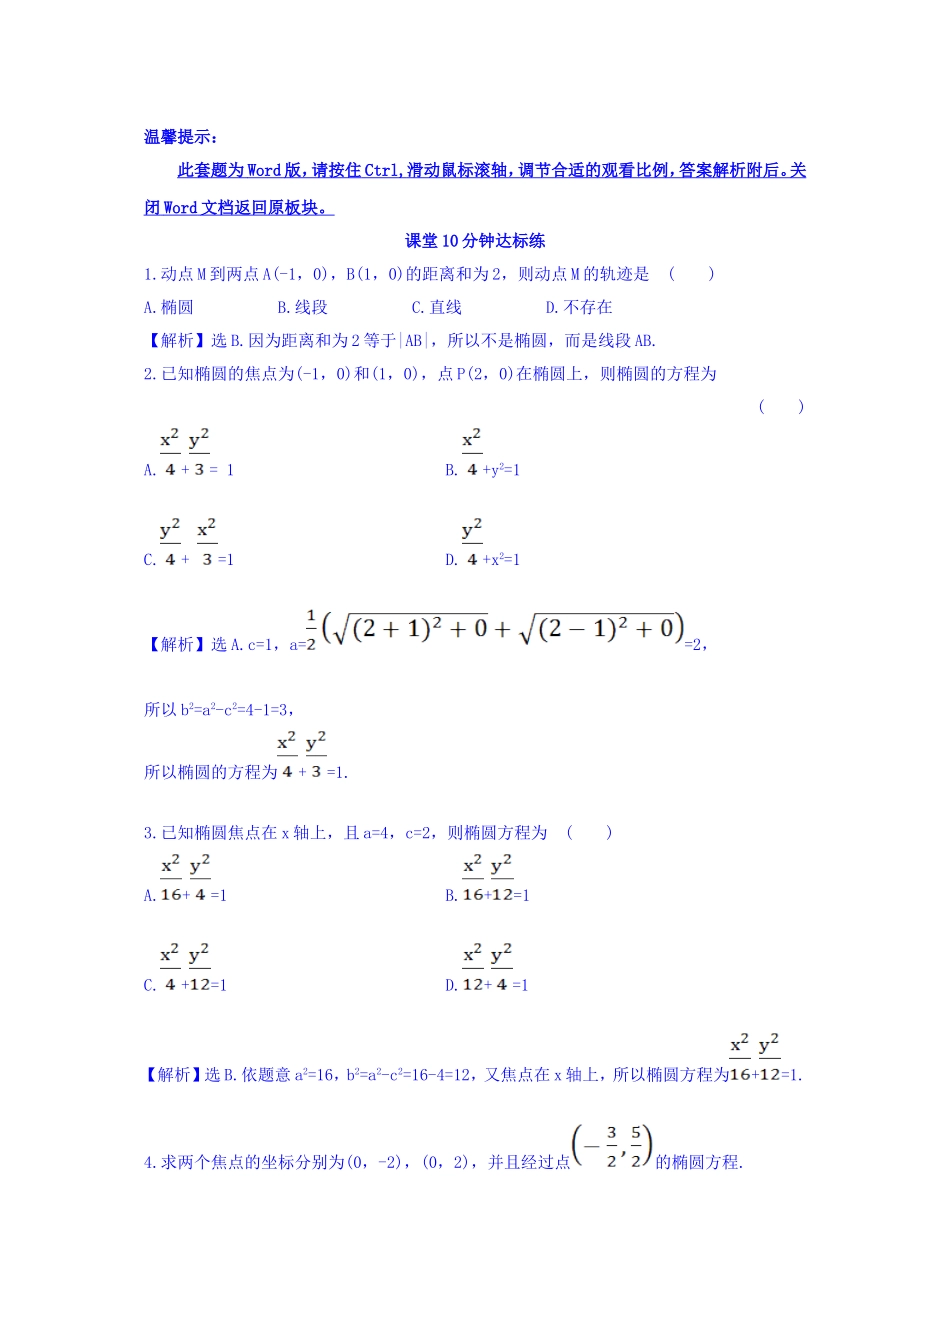 温馨提示:
此套题为 Word 版,请按住 Ctrl,滑动鼠标滚轴,调节合适的观看比例,答案解析附后。关
闭 Word 文档返回原板块。
课堂 10 分钟达标练
1.动点 M 到两点 A(-1, 0), B(1, 0)的距离和为 2, 则动点 M 的轨迹是 ( )
A.椭圆 B.线段 C.直线 D.不存在
【解析】选 B.因为距离和为 2 等于|AB|, 所以不是椭圆, 而是线段 AB.
2.已知椭圆的焦点为(-1, 0)和(1, 0), 点 P(2, 0)在椭圆上, 则椭圆的方程为
( )
A. x²/4 + y²/3 = 1 B. x²/4 +y²=1
C. y²/4 + x²/3 =1 D. y²/4 +x²=1
【解析】选 A.c=1, a=1/2(√((2+1)²+0)+√((2−1)²+0))=2,
所以 b²=a²-c²=4-1=3,
所以椭圆的方程为 x²/4 + y²/3 =1.
3.已知椭圆焦点在 x 轴上, 且 a=4, c=2, 则椭圆方程为 ( )
A. x²/16 + y²/4 =1 B. x²/16 + y²/12 =1
C. x²/4 + y²/12 =1 D. x²/12 + y²/4 =1
【解析】选 B.依题意 a²=16, b²=a²-c²=16-4=12, 又焦点在 x 轴上, 所以椭圆方程为 x²/16 + y²/12 =1.
4.求两个焦点的坐标分别为(0, -2), (0, 2), 并且经过点(−3/2, 5/2)的椭圆方程.